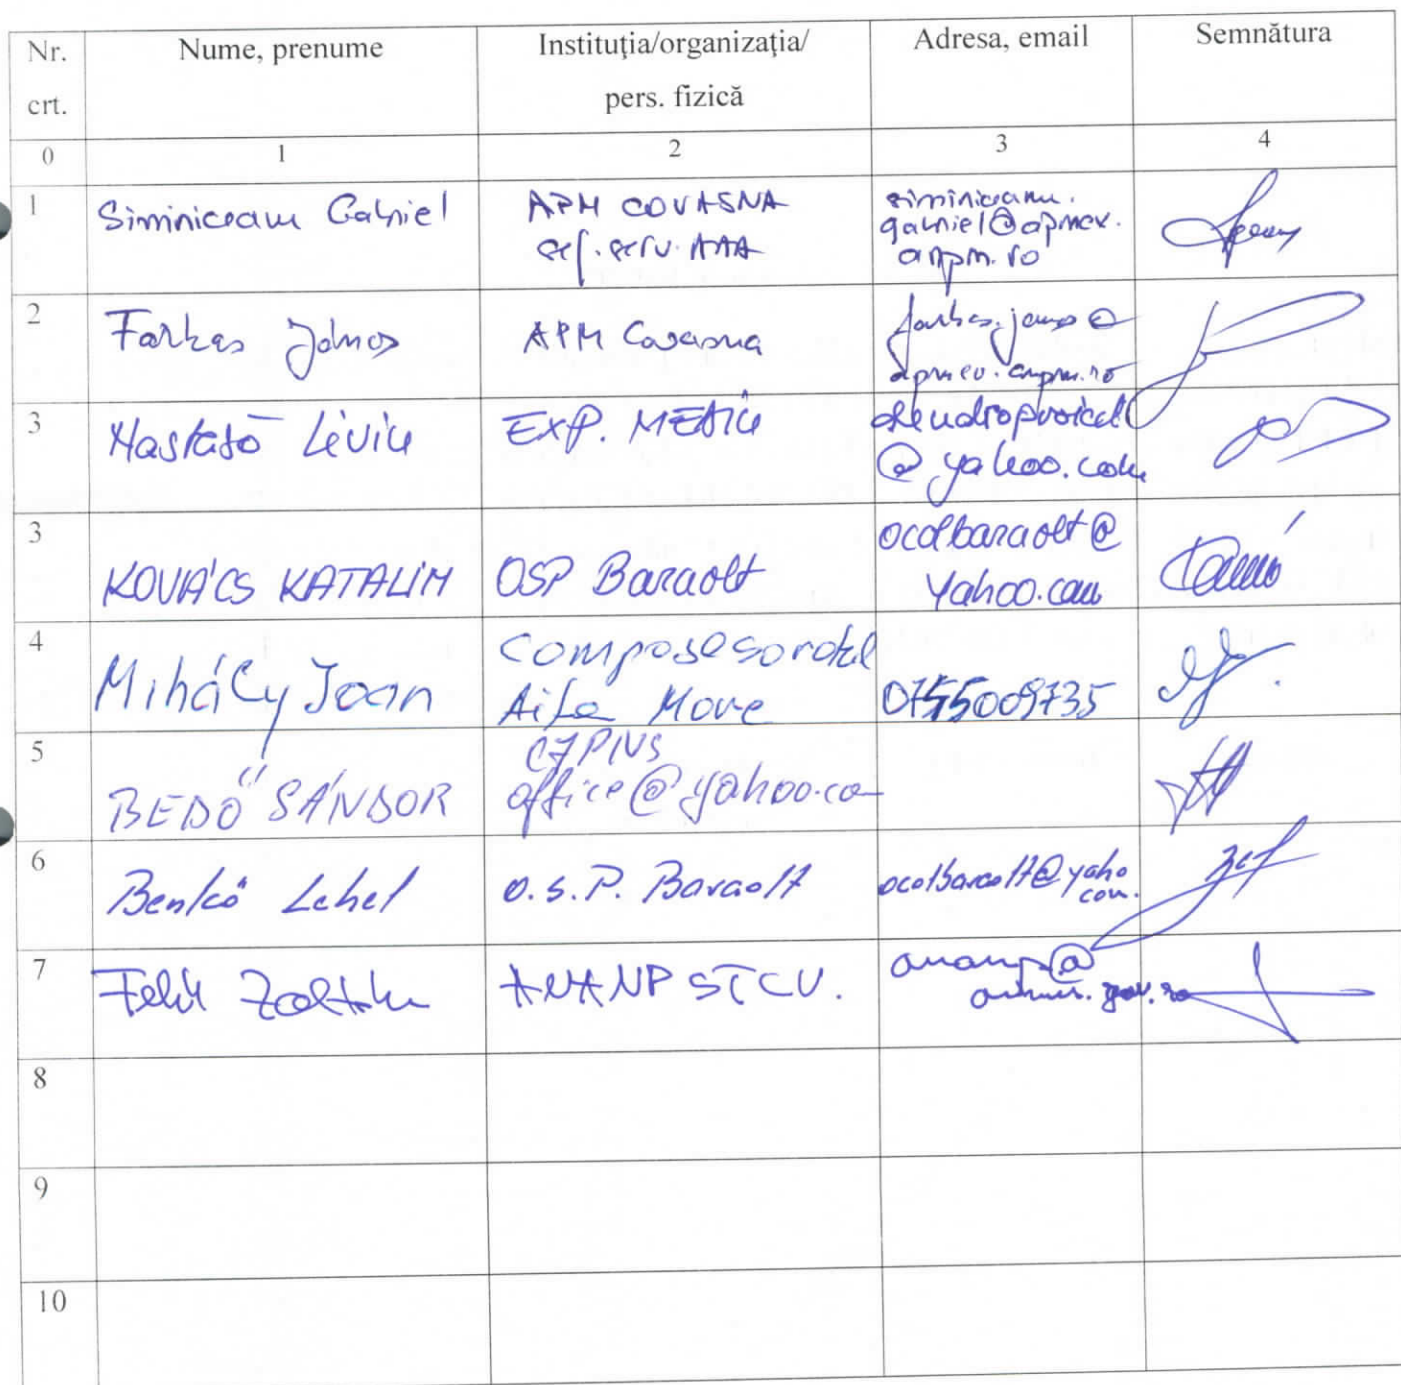 Nr. crt.
Nume, prenume
Instituția/organizația/
pers. fizică
Adresa, email
Semnătura
0 1 2 3 4
1 Siminiceanu Gabriel
APM COVASNA
șef. serv. AAA
siminiceanu.
gabriel@apmcv.
anpm.ro
2 Farkas János
APM Covasna
farkas.janos@
apmcv.anpm.ro
3
EXP. MEDIU
@yahoo.com
3 KOVÁCS KATALIN
OSP Baraolt
ocolbaraolt@
yahoo.com
4 Mihály Ioan
Composesoratul
Aita Mare
0755009735
5 BEDŐ SÁNDOR
office@yahoo.co
6 Benkő Lehel
O.S.P. Baraolt
ocolbaraolt@yaho
com.
7 Zoltán
ANANP STCV.
8
9
10